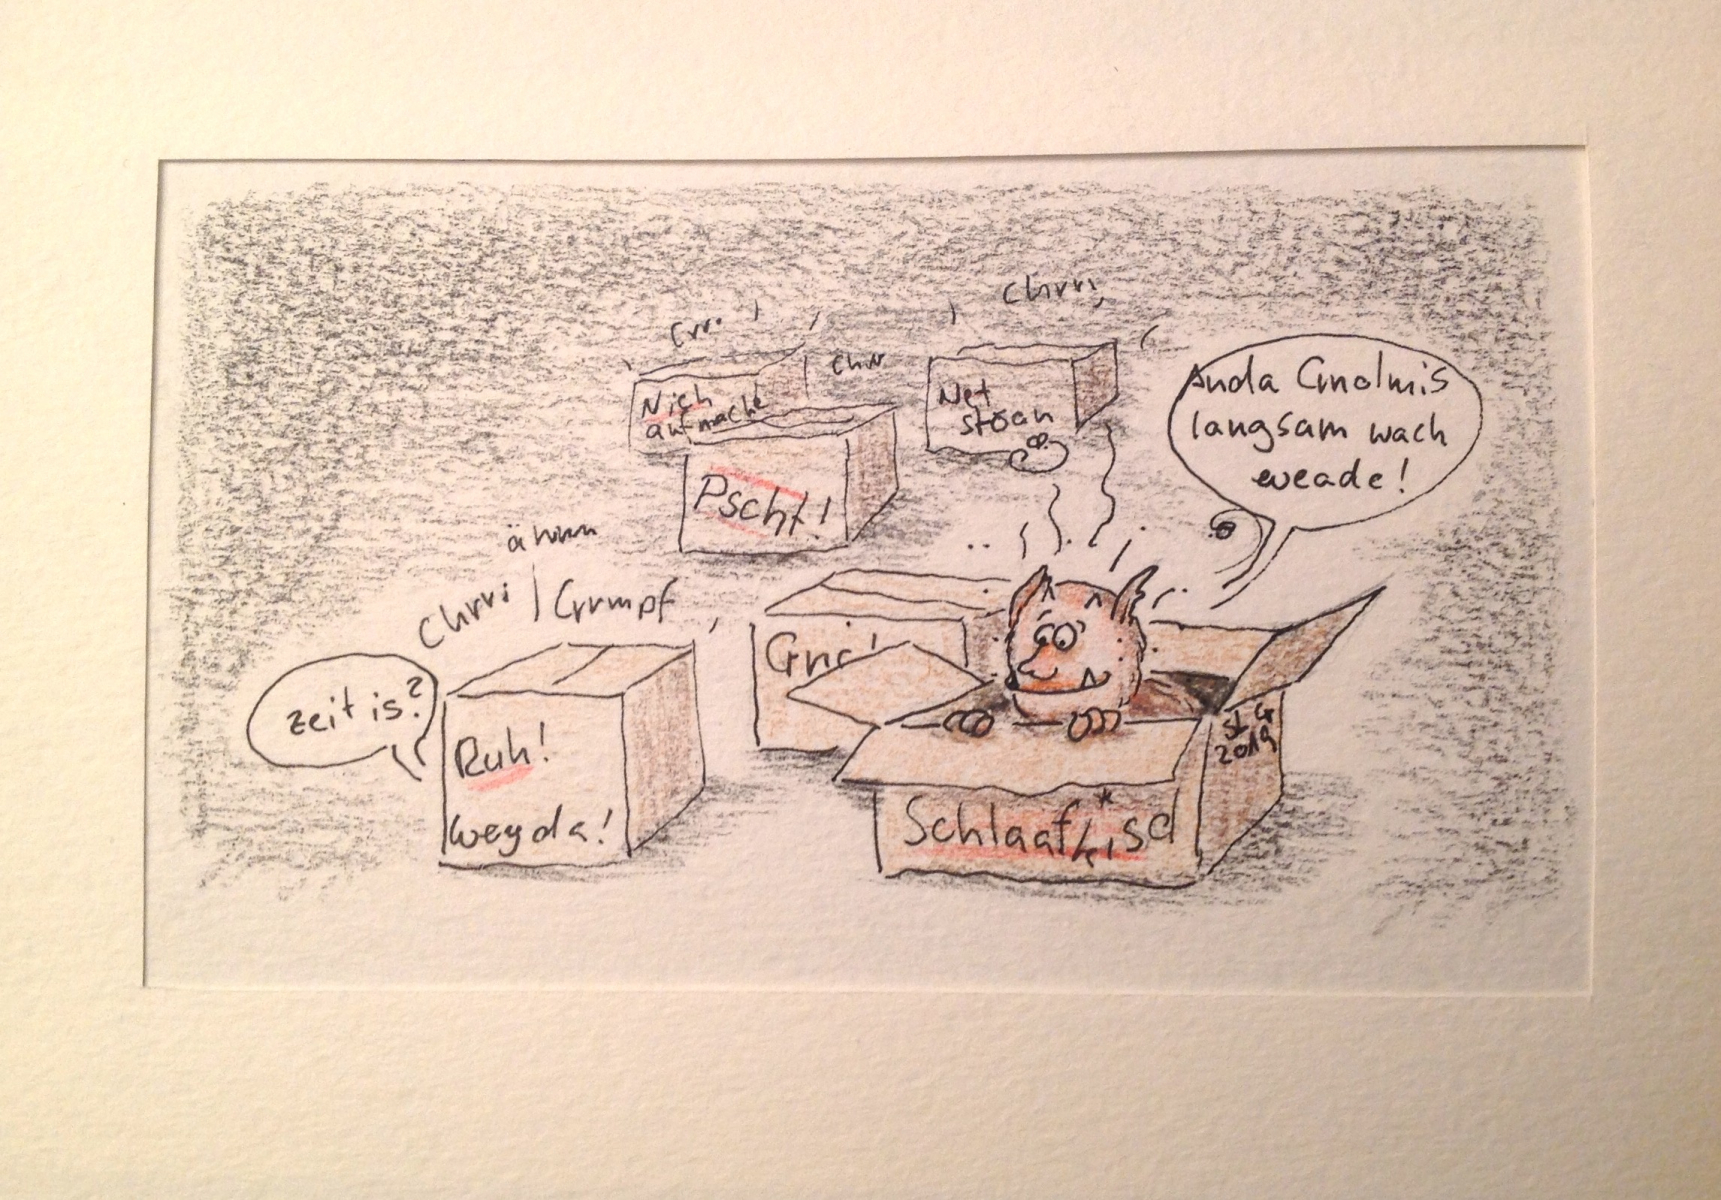 Chrri
Crr.
Chr
Nich
aufmache
Net
stöan
Pscht!
Anda Gnolmis
langsam wach
weade!
ähmm
Chrri
Crrmpf
zeit is?
Ruh!
weg da!
Gnc!
Schlaaf*kisd
St G
2019